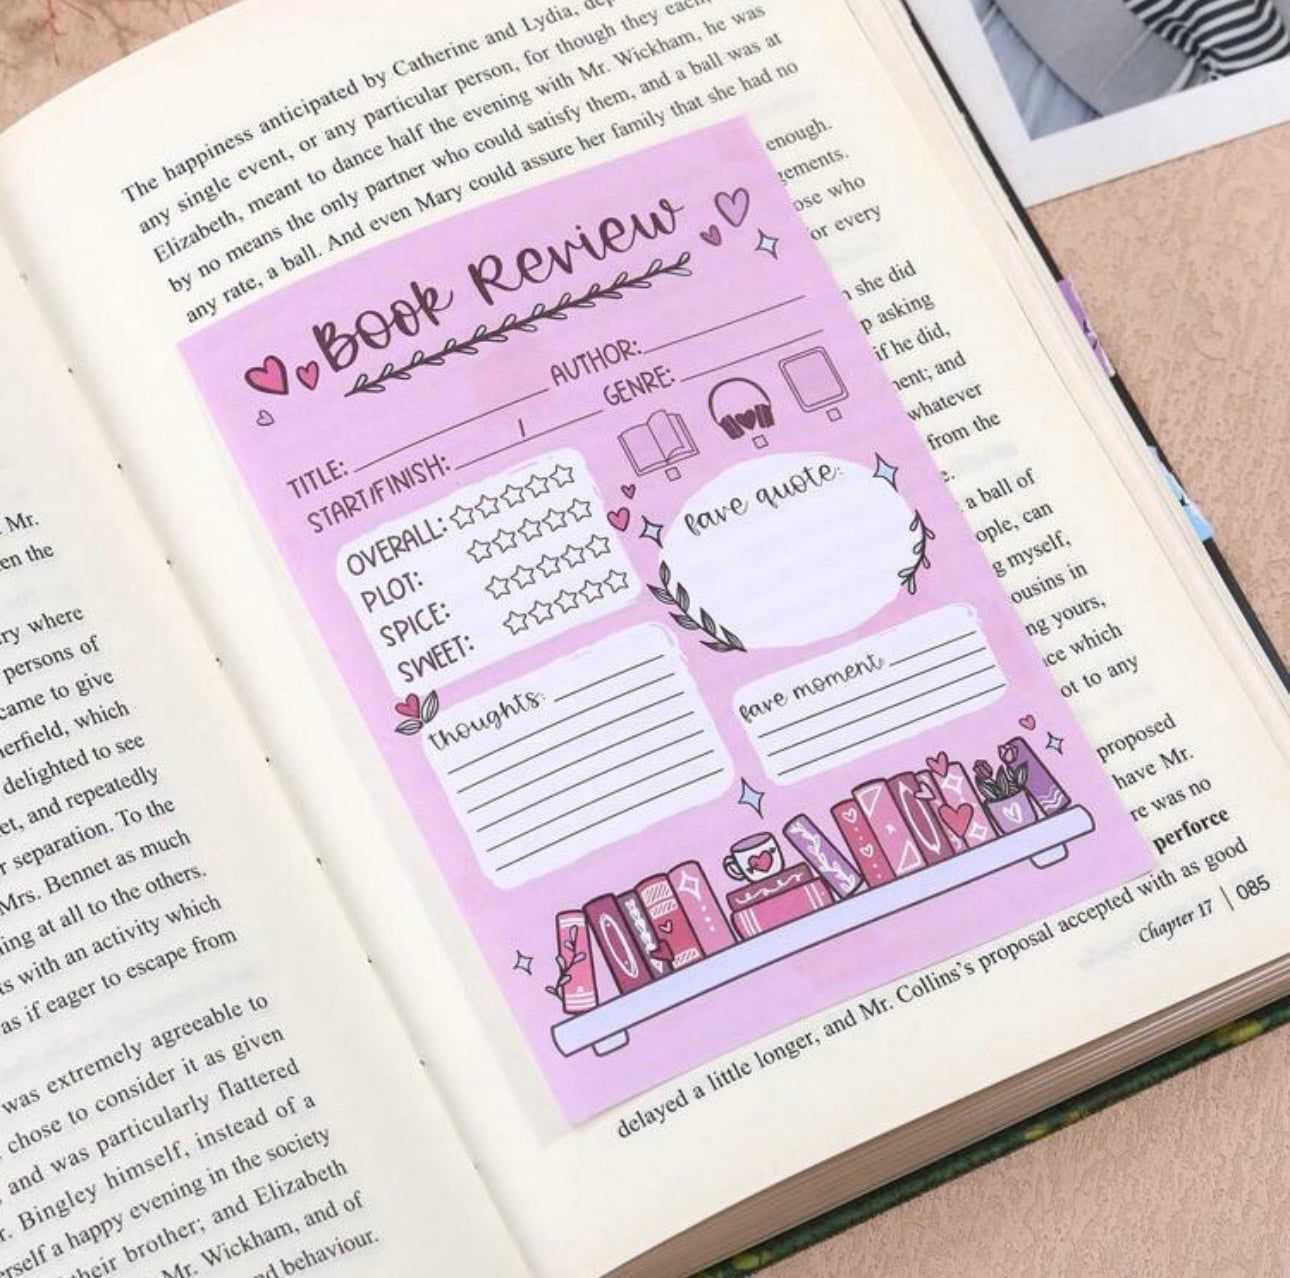 Mr.
en the
ry where
persons of
came to give
erfield, which
delighted to see
et, and repeatedly
r separation. To the
Mrs. Bennet as much
ing at all to the others.
s with an activity which
as if eager to escape from
was extremely agreeable to
chose to consider it as given
and was particularly flattered
r. Bingley himself, instead of a
erself a happy evening in the society
their brother; and Elizabeth
Mr. Wickham, and of
nd behaviour.
The happiness anticipated by Catherine and Lydia, dep
any single event, or any particular person, for though they each,
Elizabeth, meant to dance half the evening with Mr. Wickham, he was
by no means the only partner who could satisfy them, and a ball was at
any rate, a ball. And even Mary could assure her family that she had no
enough.
gements.
ose who
or every
she did
p asking
if he did,
ment; and
whatever
from the
e.
a ball of
ople, can
g myself,
ousins in
ng yours,
ce which
ot to any
proposed
have Mr.
re was no
perforce
delayed a little longer, and Mr. Collins's proposal accepted with as good
Chapter 17 | 085
Book Review
TITLE: AUTHOR:
START/FINISH: / GENRE:
OVERALL:
PLOT:
SPICE:
SWEET:
fave quote:
thoughts:
fave moment: